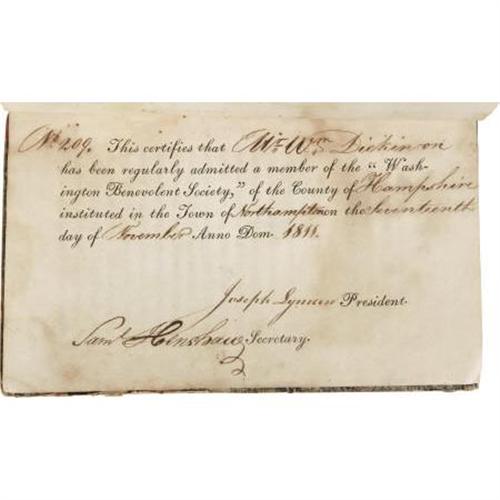 No. 209. This certifies that Mr. Wm. Dickinson
has been regularly admitted a member of the “ Wash-
ington Benevolent Society,” of the County of Hampshire
instituted in the Town of Northampton on the Seventeenth
day of November Anno Dom. 1811.
Joseph Lyman President.
Saml. Henshaw Secretary.